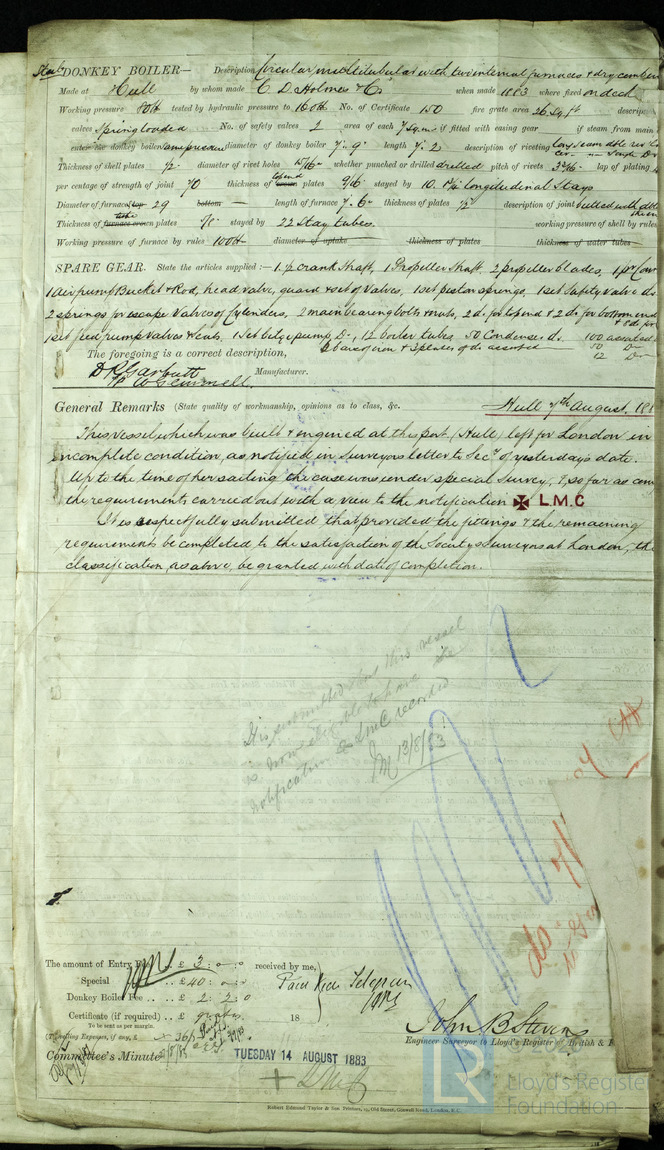 Steel DONKEY BOILER— Description Circular multitubular with two internal furnaces & dry combn
Made at Hull by whom made C D Holmes & Co when made 1883 where fixed on deck
Working pressure 80 lb tested by hydraulic pressure to 160 lb No. of Certificate 150 fire grate area 26 Sq ft descrip
valves Spring loaded No. of safety valves 2 area of each 7 Sq in if fitted with easing gear if steam from main
enter the donkey boiler diameter of donkey boiler 7'- 9" length 7'- 2" description of riveting
Thickness of shell plates 1/2" diameter of rivet holes 15/16" whether punched or drilled drilled pitch of rivets lap of plating
per centage of strength of joint 70 thickness of crown plates 9/16 stayed by 10. longitudinal Stays
Diameter of furnace top 29 bottom — length of furnace 7'- 6" thickness of plates 1/2" description of joint
Thickness of furnace crown tube plates stayed by 22 Stay tubes working pressure of shell by rules
Working pressure of furnace by rules 100 lb diameter of uptake thickness of plates thickness of water tubes
SPARE GEAR. State the articles supplied:— 1 1/2 crank Shaft, 1 Propeller Shaft, 2 propeller blades, 1
1 Air pump Bucket & Rod, head valve, guard & set of valves, 1 set piston springs, 1 set Safety valve do
2 springs for escape valves of Cylinders, 2 main bearing bolts & nuts, 2 do. for top end & 2 do. for bottom end
1 set feed pump valves & seats, 1 Set bilge pump Do, 12 boiler tubes 50 Condenser do. 100 assorted
2 bars of iron & 3 plates of do assorted
The foregoing is a correct description,
D P Garbutt Manufacturer.
General Remarks (State quality of workmanship, opinions as to class, &c. Hull 7th August. 188
This vessel which was built & engined at this port (Hull) left for London in
incomplete condition, as notified in Surveyors letter to Secy of yesterday's date.
Up to the time of her sailing the case was under special Survey, & so far as com
the requirements carried out with a view to the notification ✠ L.M.C
It is respectfully submitted that provided the fittings & the remaining
requirements be completed to the satisfaction of the Society's Surveyors at London, the
classification, as above, be granted with date of completion.
It is submitted that this vessel
is now eligible to have the
notification & LMC recorded
13/8/83
The amount of Entry Fee .. £ 3 : 0 : 0 received by me,
Special .. £ 40 : 0 : 0
Donkey Boiler Fee .. £ 2 : 2 : 0
Certificate (if required) .. £ gratis 18
To be sent as per margin.
(Travelling Expenses, if any, £
John B Stevens
Engineer Surveyor to Lloyd's Register British & F
Committee's Minute TUESDAY 14 AUGUST 1883
+ LMC
Robert Edmund Taylor & Son Printers, 19, Old Street, Goswell Road, London, E.C.
LR
Lloyd's Register
Foundation